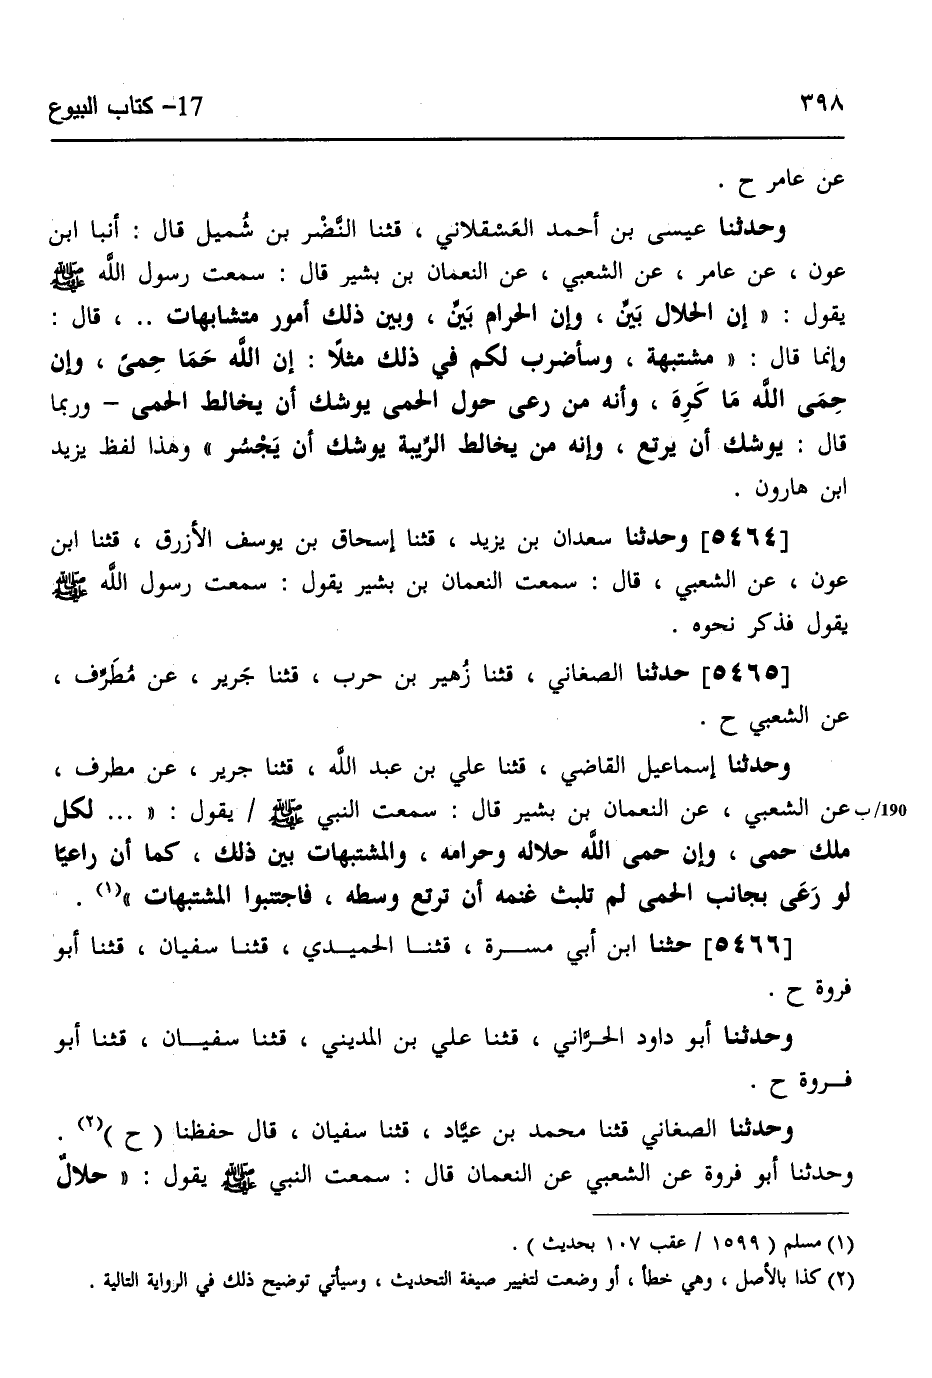 ٣٩٨
17- كتاب البيوع
عن عامر ح .
وحدثنا عيسى بن أحمد العَسْقلاني ، قثنا النَّضْر بن شُميل قال : أنبا ابن
عون ، عن عامر ، عن الشعبي ، عن النعمان بن بشير قال : سمعت رسول اللَّه ﷺ
يقول : « إن الحلال بَيِّنٌ ، وإن الحرام بَيِّنٌ ، وبين ذلك أمور متشابهات .. ، قال :
وإنما قال : « مشتبهة ، وسأضرب لكم في ذلك مثلًا : إن اللَّه حَمَا حِمىً ، وإن
حِمَى اللَّه مَا كَرِهَ ، وأنه من رعى حول الحمى يوشك أن يخالط الحمى – وربما
قال : يوشك أن يرتع ، وإنه من يخالط الرِّيبة يوشك أن يَجْسُر » وهذا لفظ يزيد
ابن هارون .
[٥٤٦٤] وحدثنا سعدان بن يزيد ، قثنا إسحاق بن يوسف الأزرق ، قثنا ابن
عون ، عن الشعبي ، قال : سمعت النعمان بن بشير يقول : سمعت رسول اللَّه ﷺ
يقول فذكر نحوه .
[٥٤٦٥] حدثنا الصغاني ، قثنا زُهير بن حرب ، قثنا جَرير ، عن مُطَرِّف ،
عن الشعبي ح .
وحدثنا إسماعيل القاضي ، قثنا علي بن عبد اللَّه ، قثنا جرير ، عن مطرف ،
190/ب عن الشعبي ، عن النعمان بن بشير قال : سمعت النبي ﷺ / يقول : « ... لكل
ملك حمى ، وإن حمى اللَّه حلاله وحرامه ، والمشتبهات بين ذلك ، كما أن راعيًا
لو رَعَى بجانب الحمى لم تلبث غنمه أن ترتع وسطه ، فاجتنبوا المشتبهات »(١) .
[٥٤٦٦] حثنا ابن أبي مسرة ، قثنا الحميدي ، قثنا سفيان ، قثنا أبو
فروة ح .
وحدثنا أبو داود الحرَّاني ، قثنا علي بن المديني ، قثنا سفيان ، قثنا أبو
فروة ح .
وحدثنا الصغاني قثنا محمد بن عيَّاد ، قثنا سفيان ، قال حفظنا ( ح )(٢) .
وحدثنا أبو فروة عن الشعبي عن النعمان قال : سمعت النبي ﷺ يقول : « حلالٌ
(١) مسلم ( ١٥٩٩ / عقب ١٠٧ بحديث ) .
(٢) كذا بالأصل ، وهي خطأ ، أو وضعت لتغيير صيغة التحديث ، وسيأتي توضيح ذلك في الرواية التالية .